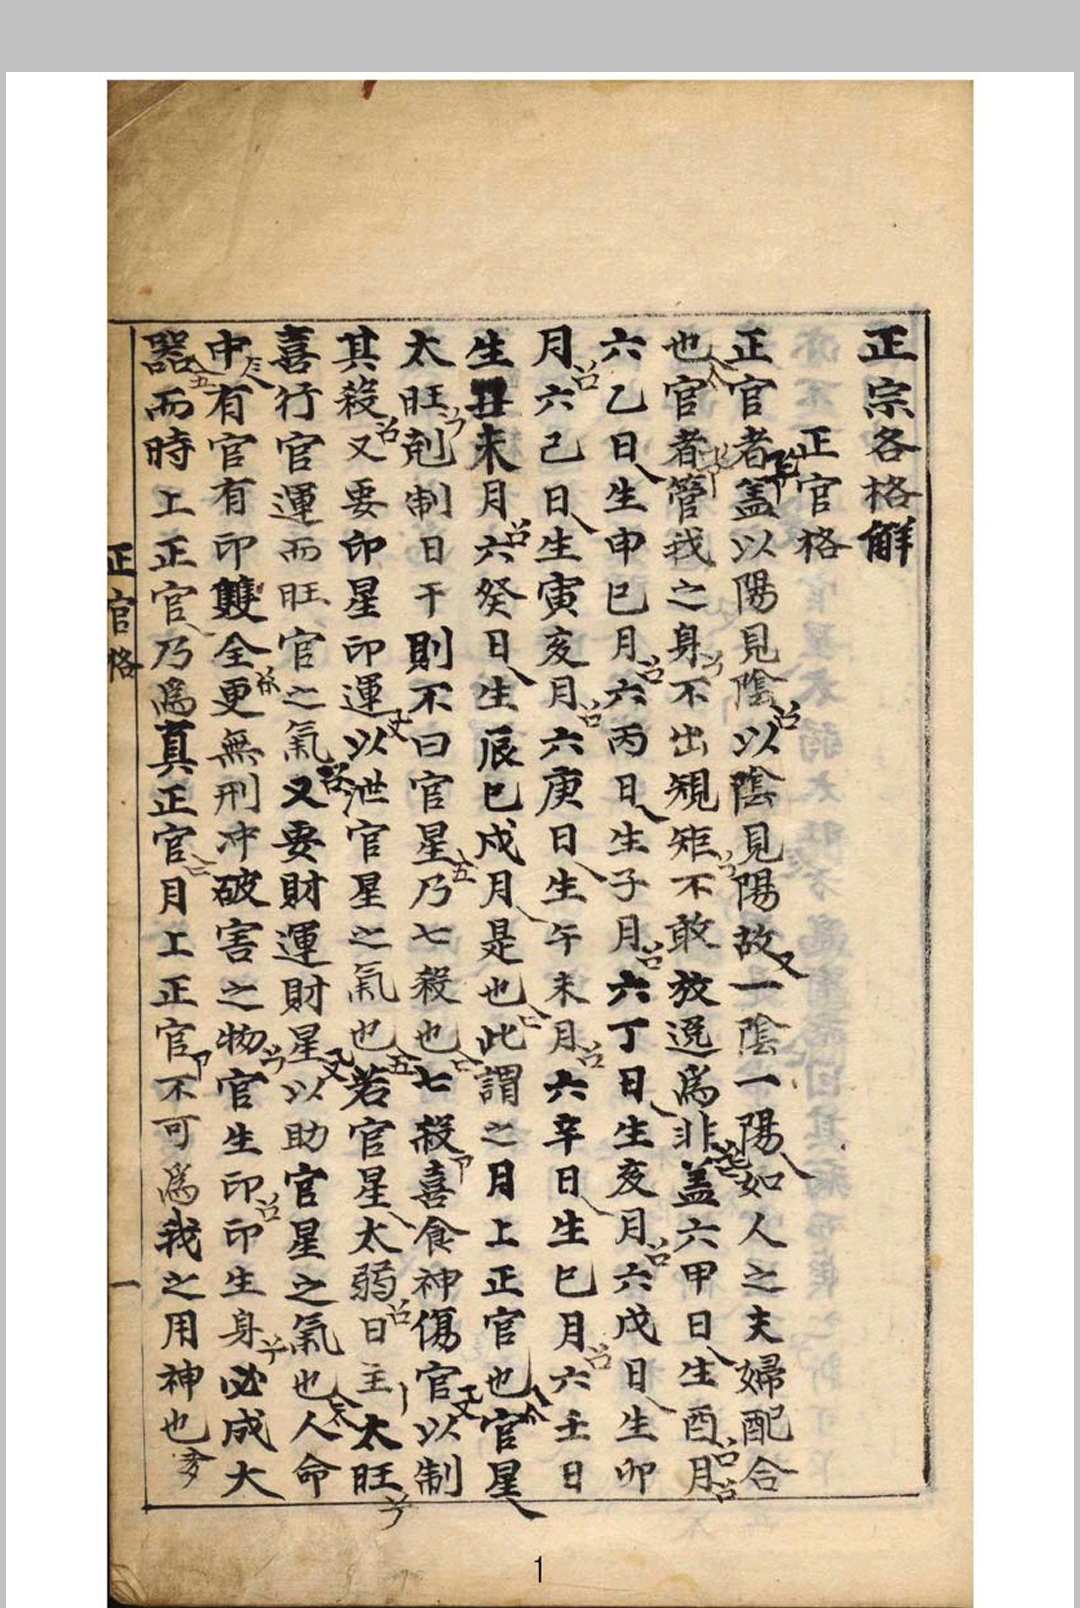 正宗各格解
正官格
正官者盖以陽見陰以陰見陽故一陰一陽如人之夫婦配合
也官者管我之身不出規矩不敢放逸爲非盖六甲日生酉月
六乙日生申巳月六丙日生子月六丁日生亥月六戊日生卯
月六己日生寅亥月六庚日生午未月六辛日生巳月六壬日
生丑未月六癸日生辰巳戌月是也此謂之月上正官也官星
太旺剋制日干則不曰官星乃七殺也七殺喜食神傷官以制
其殺又要印星印運以泄官星之氣也若官星太弱日主太旺
喜行官運而旺官之氣又要財運財星以助官星之氣也人命
中有官有印雙全更無刑冲破害之物官生印印生身必成大
器而時上正官乃爲真正官月上正官不可爲我之用神也
正官格
一
1